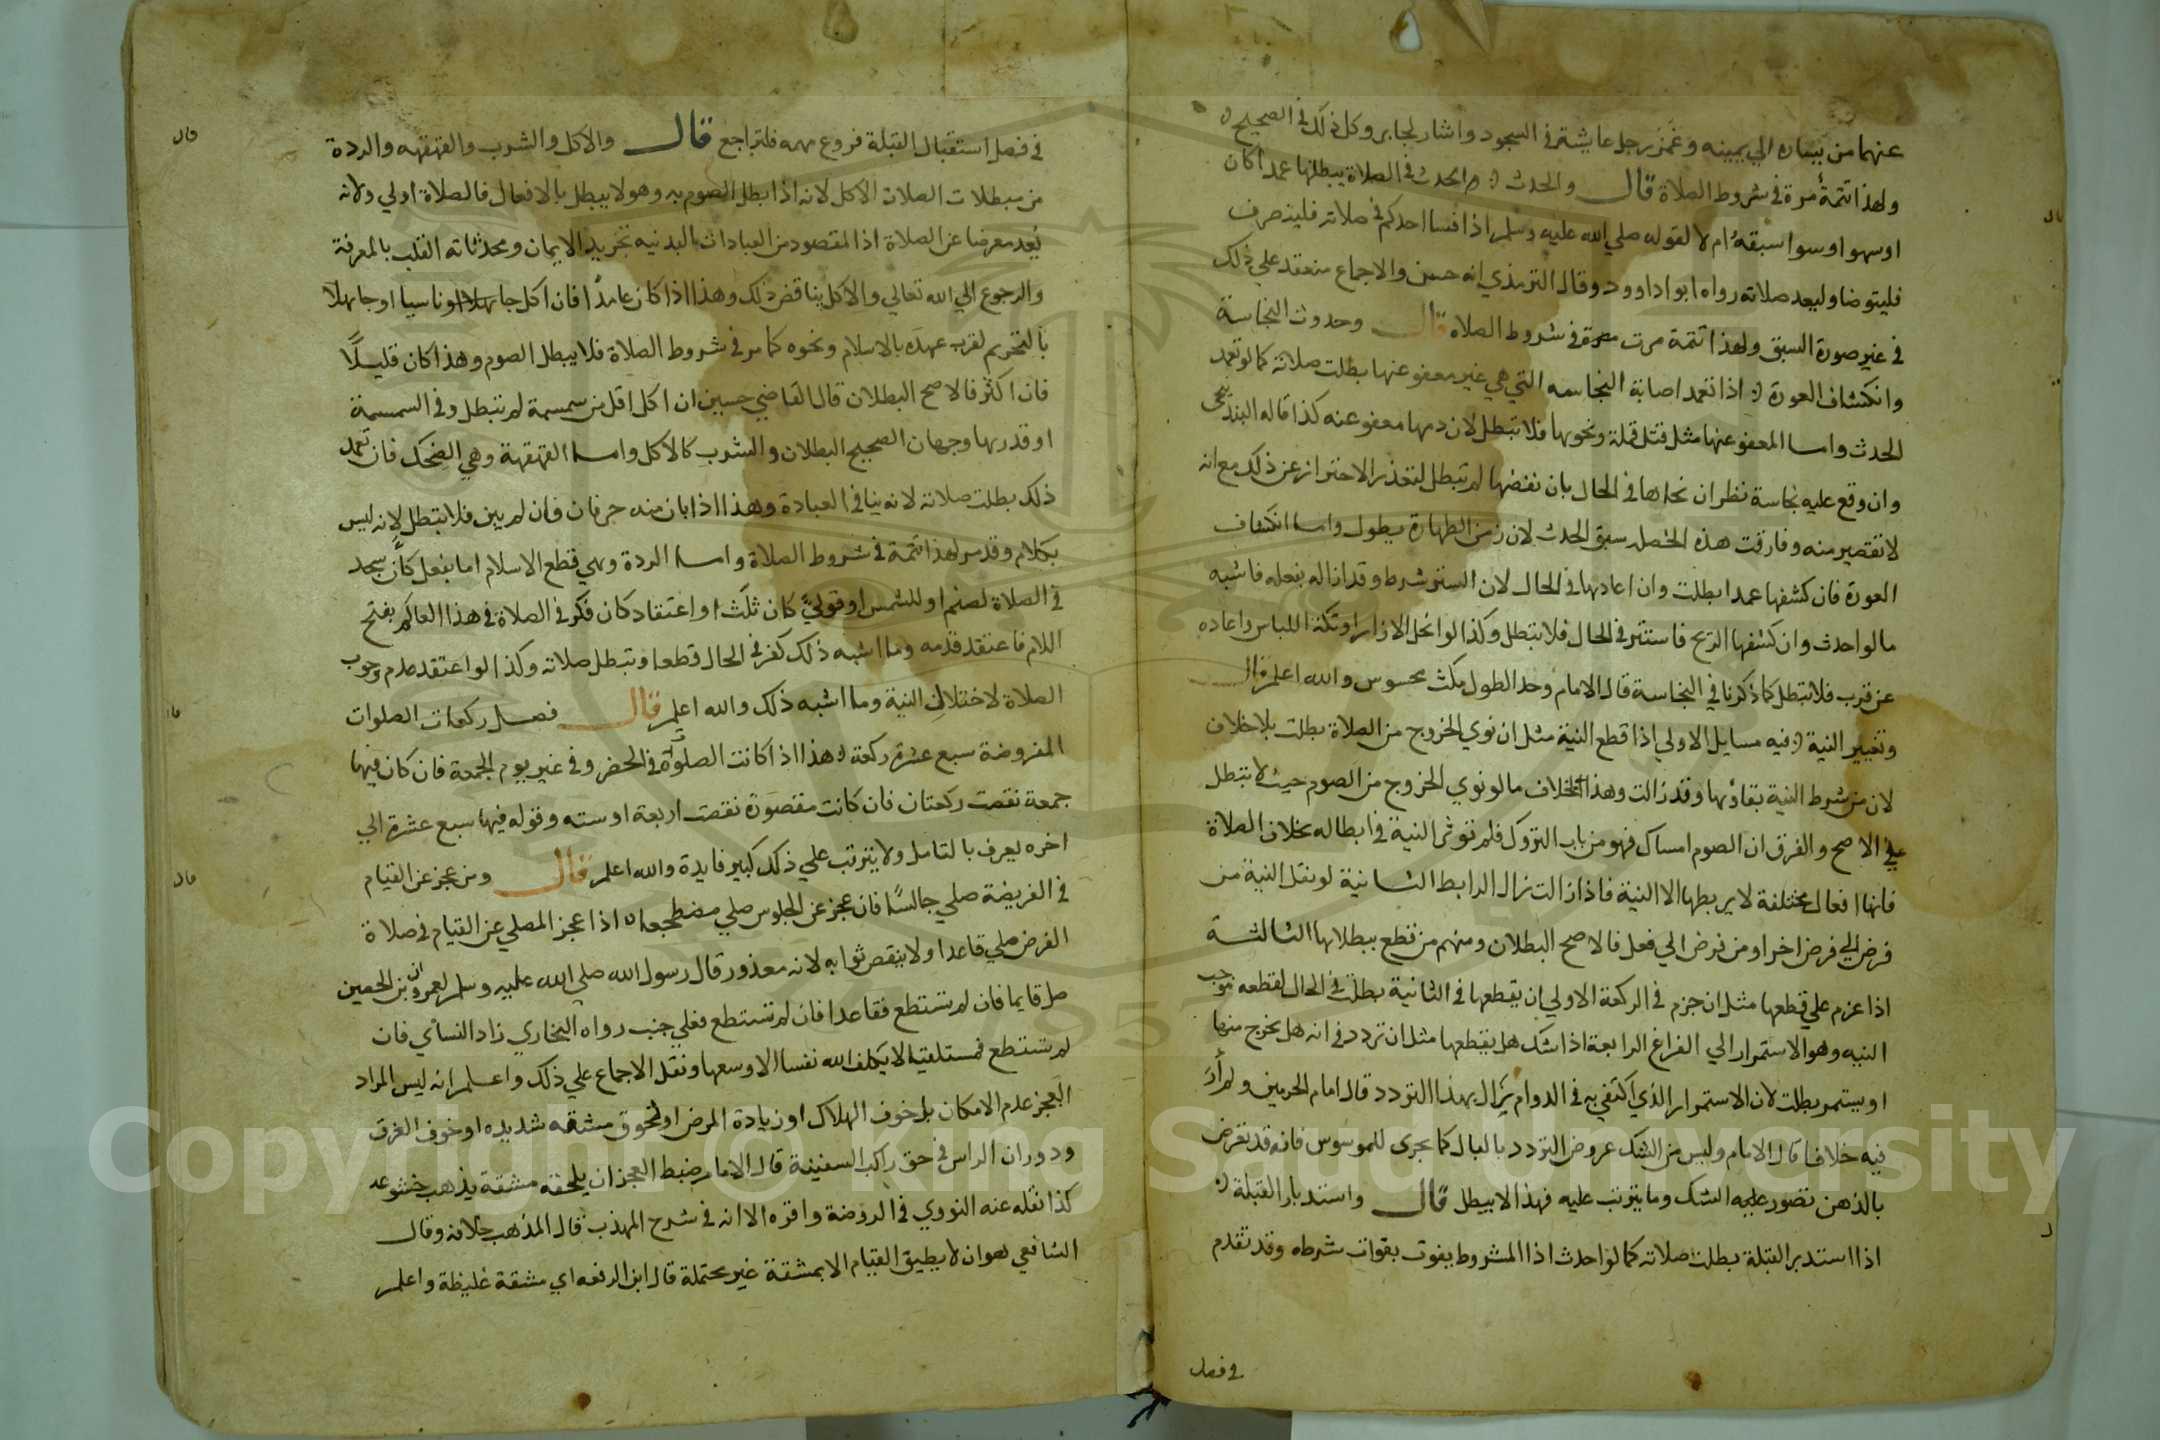 عنهما من يساره الي يمينه وغمز رجل عايشة في السجود واشار لجابر وكل ذلك في الصحيح
ولهذا تتمة مرة في شروط الصلاة قال والحدث والحدث في الصلاة يبطلها عمدا كان
او سهوا وسوا سبقه ام لا لقوله صلي الله عليه وسلم اذا فسا احدكم في صلاته فلينصرف
فليتوضا وليعد صلاته رواه ابوا داوود وقال الترمذي انه حسن والاجماع منعقد علي ذلك
في غير صورة السبق ولهذا تتمة مرت في شروط الصلاه قال وحدوث النجاسة
وانكشاف العورة اذا تعمد اصابة النجاسه التي هي غير معفو عنها بطلت صلاته كما لو تعمد
الحدث واما المعفو عنها مثل قتل قملة ونحوها فلا تبطل لان دمها معفو عنه كذا قاله البندنيجي
وان وقع عليه نجاسة نظر ان نحاها في الحال بان نفضها لم تبطل لتعذر الاحتراز عن ذلك مع انه
لا تقصير منه وفارقت هذه الخصلة سبق الحدث لان زمن الطهارة يطول واما انكشاف
العورة فان كشفها عمدا بطلت وان اعادها في الحال لان الستر شرط وقد ازاله بفعله فاشبه
ما لو احدث وان كشفها الريح فاستتر في الحال فلا تبطل وكذا لو انحل الازار او تكة اللباس واعاده
عن قرب فلا تبطل كما ذكرنا في النجاسة قال الامام وحد الطول مكث محسوس والله اعلم قال
وتغيير النية فيه مسايل الاولي اذا قطع النية مثل ان نوي الخروج من الصلاة بطلت بلا خلاف
لان من شرط النية بقاؤها وقد زالت وهذا بخلاف ما لو نوي الخروج من الصوم حيث لا تبطل
علي الاصح والفرق ان الصوم امساك فهو من باب التروك فلم تؤثر النية في ابطاله بخلاف الصلاة
فانها افعال مختلفة لا يربطها الا النية فاذا زالت زال الرابط الثانية لو نقل النية من
فرض الي فرض اخر او من فرض الي نفل فالاصح البطلان ومنهم من قطع ببطلانها الثالثة
اذا عزم علي قطعها مثل ان جزم في الركعة الاولي ان يقطعها في الثانية بطلت في الحال لقطعه موجب
النيه وهو الاستمرار الي الفراغ الرابعة اذا شك هل يقطعها مثل ان تردد في انه هل يخرج منها
او يستمر بطلت لان الاستمرار الذي اكتفي به في الدوام يزال بهذا التردد قال امام الحرمين ولم أر
فيه خلافا قال الامام وليس من الشك عروض التردد بالبال كما يجري للموسوس فانه قد تعرض
بالذهن تصور الشك وما يترتب عليه فهذا لا يبطل قال واستدبار القبلة
اذا استدبر القبلة بطلت صلاته كما لو احدث اذا المشروط يفوت بفوات شرطه وقد تقدم
في فصل
في فصل استقبال القبلة فروع مهمه فلتراجع قال والاكل والشرب والقهقهه والردة
من مبطلات الصلاة الاكل لانه اذا بطل الصوم به وهو لا يبطل بالافعال فالصلاة اولي ولانه
يُعد معرضا عن الصلاة اذ المقصود من العبادات البدنيه تجريد الايمان ومحدثاته القلب بالمعرفة
والرجوع الي الله تعالي والاكل يناقض ذلك وهذا اذا كان عامدا فان اكل ناسيا او جاهلا
بالتحريم لقرب عهده بالاسلام ونحوه كما مر في شروط الصلاة فلا يبطل الصوم وهذا كان قليلًا
فان اكثر فالاصح البطلان قال القاضي حسين ان اكل اقل من سمسمة لم تبطل وفي السمسمة
او قدرها وجهان الصحيح البطلان والشرب كالاكل واما القهقهة وهي الضحك فان تعمد
ذلك بطلت صلاته لانه ينافي العبادة وهذا اذا بان منه حرفان فان لم يبن فلا تبطل لانه ليس
بكلام وقد مر لهذا تتمة في شروط الصلاة واما الردة وهي قطع الاسلام اما بفعل كان سجد
في الصلاة لصنم او للشمس او قولي كان ثلث او اعتقاد كان فكر في الصلاة في هذا العالم بفتح
اللام فاعتقد قدمه وما اشبه ذلك كفر في الحال قطعا وتبطل صلاته وكذا لو اعتقد عدم وجوب
الصلاة لاختلاف النية وما اشبه ذلك والله اعلم قال فصل ركعات الصلوات
المفروضة سبع عشرة ركعة هذا اذا كانت الصلوة في الحضر وفي غير يوم الجمعة فان كان فيها
جمعة نقصت ركعتان فان كانت مقصورة نقصت اربعة او سته وقوله فيها سبع عشرة الي
اخره يعرف بالتامل ولا يترتب علي ذلك كبير فايدة والله اعلم قال ومن عجز عن القيام
في الفريضة صلي جالسًا فان عجز عن الجلوس صلي مضطجعا اذا عجز المصلي عن القيام في صلاة
الفرض صلي قاعدا ولا ينقص ثوابه لانه معذور قال رسول الله صلي الله عليه وسلم لعمران بن الحصين
صل قايما فان لم تستطع فقاعدا فان لم تستطع فعلي جنب رواه البخاري زاد النسأي فان
لم تستطع فمستلقيا لا يكلف الله نفسا الا وسعها ونقل الاجماع علي ذلك واعلم انه ليس المراد
العجز عدم الامكان بل خوف الهلاك او زيادة المرض او لحوق مشقه شديده او خوف الغرق
ودوران الراس في حق راكب السفينة قال الامام ضبط العجز ان يلحقه مشقة يذهب خشوعه
كذا نقله عنه النووي في الروضة واقره الا انه في شرح المهذب قال المذهب خلافه وقال
الشافعي هو ان لا يطيق القيام الا بمشقة غير محتملة قال ابن الرفعه اي مشقة غليظة واعلم
قال
قال
Copyright © King Saud University
1957